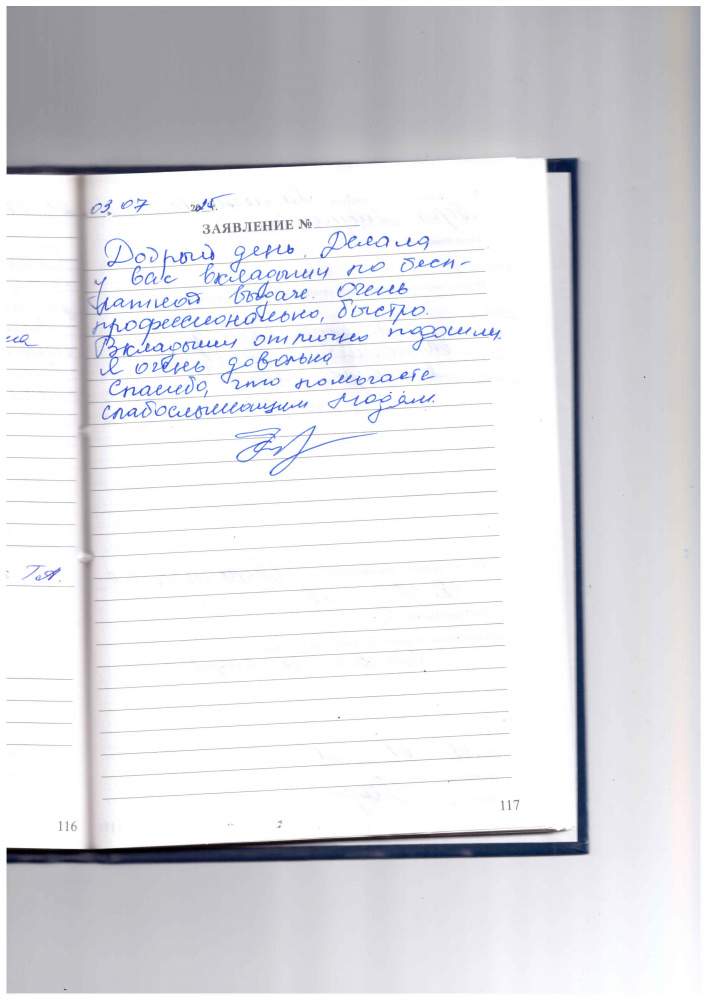 03. 07 2015г.
ЗАЯВЛЕНИЕ №
Добрый день. Делала
у вас вкладыши по бесп-
латной выдаче. Очень
профессионально, быстро.
Вкладыши отлично подошли.
Я очень довольна
Спасибо, что помогаете
слабослышащим людям.
на
Т.А.
116
117